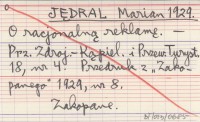 JĘDRAL Marian 1929.
O racjonalną reklamę. —
Prz. Zdroj.-Kąpiel. i Przew. Turyst.
18, nr 4. Przedruk z „Zako-
panego" 1929, nr 8.
Zakopane.